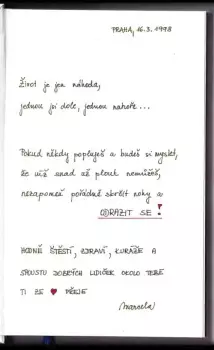 PRAHA, 16.3.1998
Život je jen náhoda,
jednou jsi dole, jednou nahoře...
Pokud někdy popluješ a budeš si myslet,
že už snad ani plout nemůžeš,
nezapomeň pořádně skrčit nohy a
ODRAZIT SE!
HODNĚ ŠTĚSTÍ, ZDRAVÍ, KURÁŽE A
SPOUSTU DOBRÝCH LIDIČEK OKOLO TEBE
TI ZE ♥ PŘEJE
Marcela